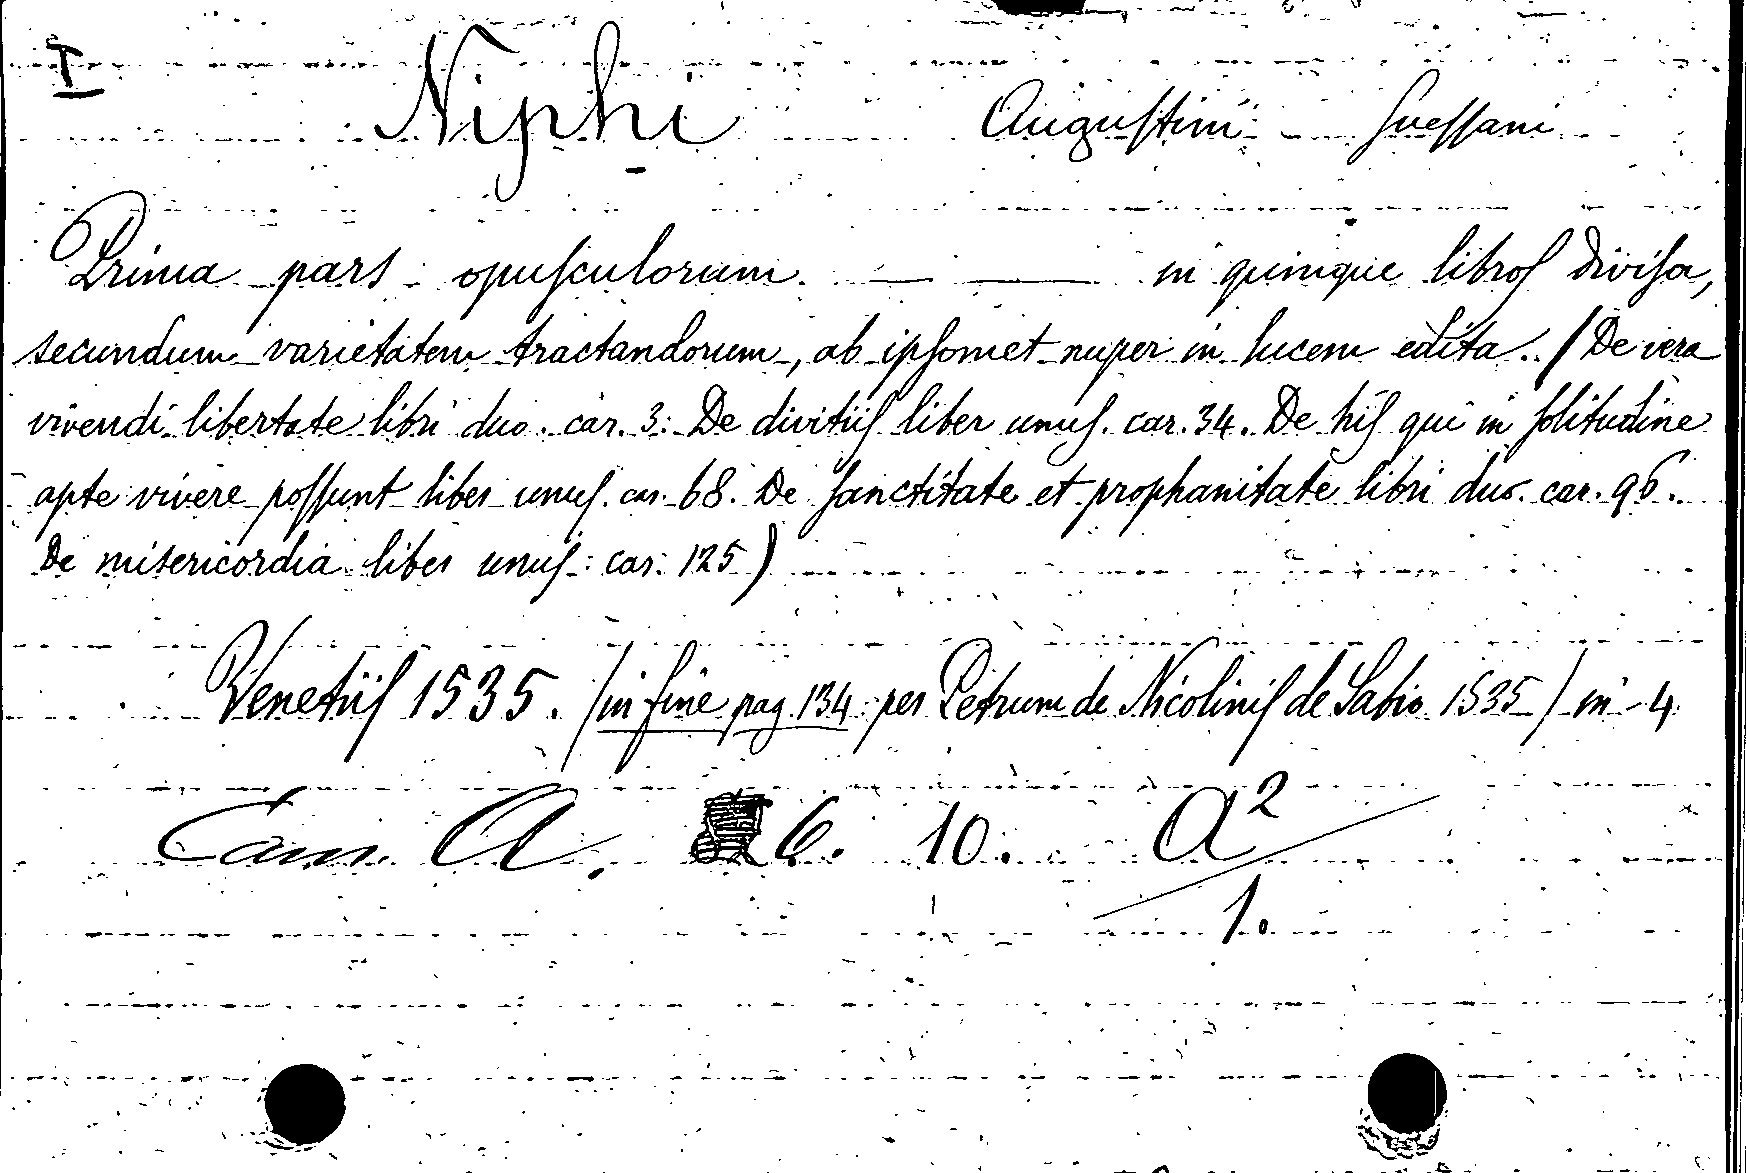 I
Niphi Augustini Suessani
Prima pars opusculorum — — in quinque libros divisa,
secundum varietatem tractandorum, ab ipsomet nuper in lucem edita. (De vera
vivendi libertate libri duo. car. 3. De divitiis liber unus. car. 34. De his qui in solitudine
apte vivere possunt liber unus. car. 68. De sanctitate et prophanitate libri duo. car. 96.
De misericordia liber unus: car: 125)
Venetiis 1535. (in fine pag. 134 per Petrum de Nicolinis de Sabio 1535) in 4
Cam. A. 6. 10. A²/1.